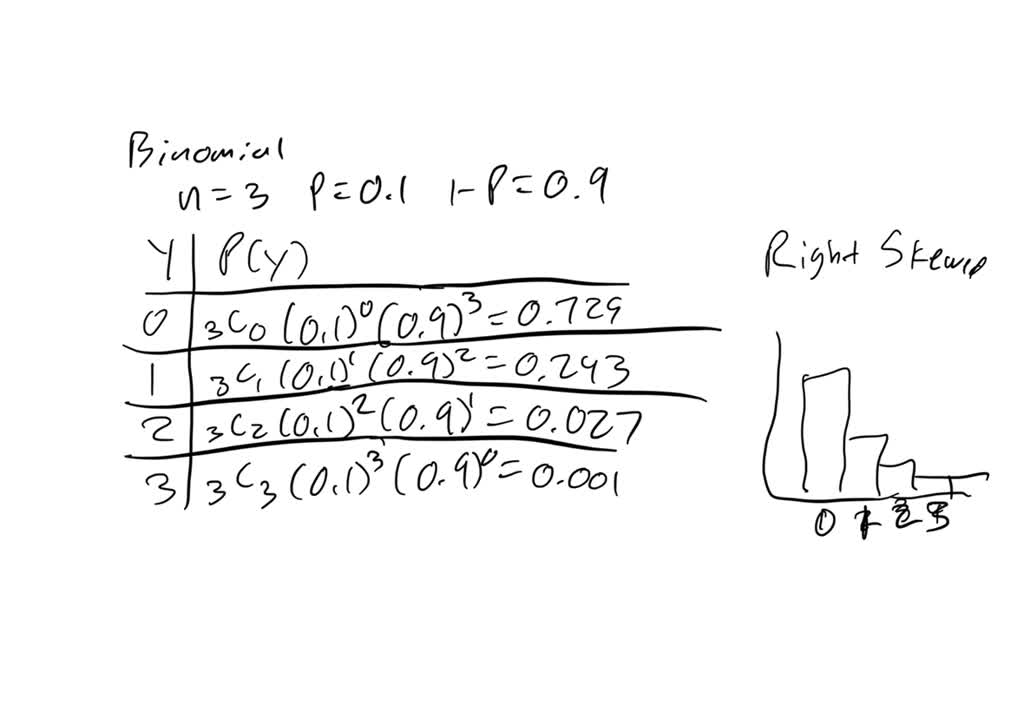 Binomial
n = 3 P = 0.1 1 - P = 0.9
Y P(Y)
0 ₃C₀ (0.1)⁰ (0.9)³ = 0.729
1 ₃C₁ (0.1)¹ (0.9)² = 0.243
2 ₃C₂ (0.1)² (0.9)¹ = 0.027
3 ₃C₃ (0.1)³ (0.9)⁰ = 0.001
Right
0 1 2 3